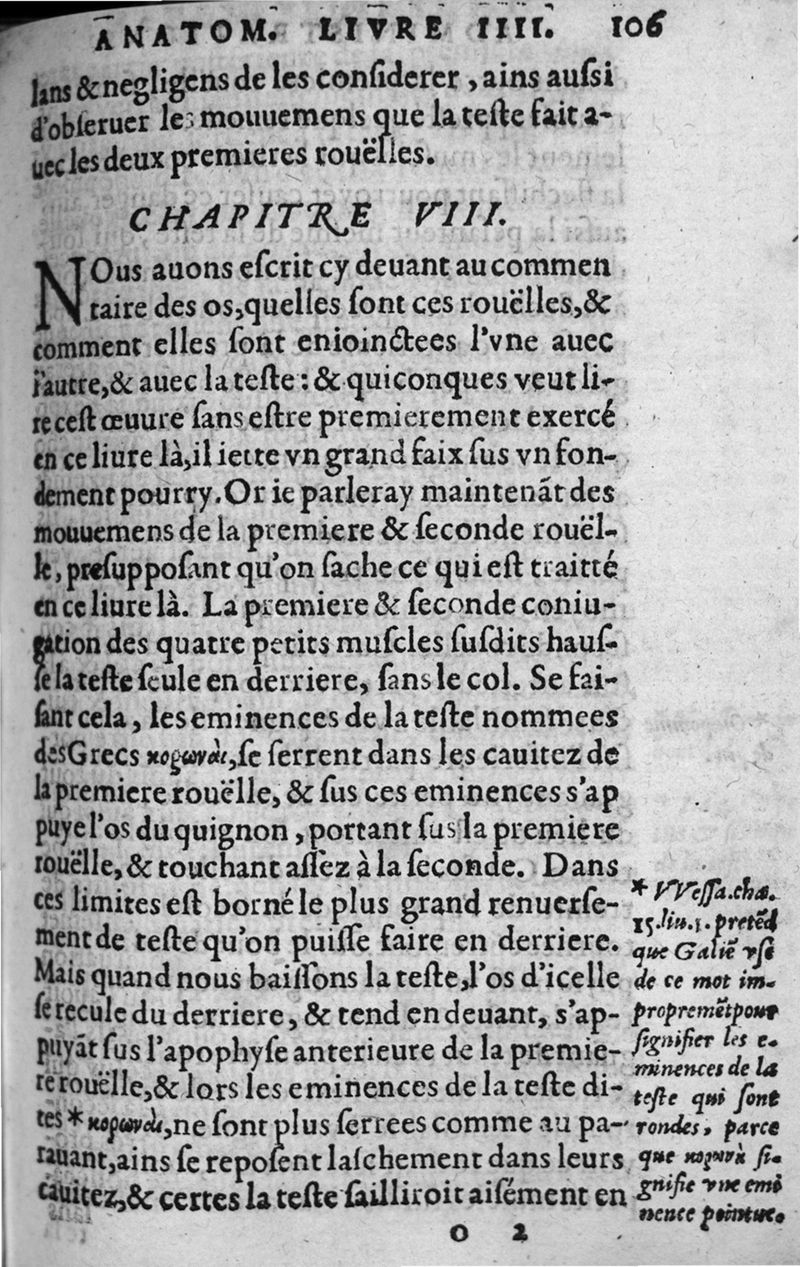 ANATOM. LIVRE IIII. 106
lans & negligens de les conſiderer, ains auſsi
d'obſeruer les mouuemens que la teſte fait a-
uec les deux premieres rouëlles.
CHAPITRE VIII.
NOus auons eſcrit cy deuant au commen
taire des os, quelles ſont ces rouëlles, &
comment elles ſont enioinctees l'vne auec
l'autre, & auec la teſte: & quiconques veut li-
re ceſt œuure ſans eſtre premierement exercé
en ce liure là, il iette vn grand faix ſus vn fon-
dement pourry. Or ie parleray maintenãt des
mouuemens de la premiere & ſeconde rouël-
le, preſuppoſant qu'on ſache ce qui eſt traitté
en ce liure là. La premiere & ſeconde coniu-
gation des quatre petits muſcles ſuſdits hauſ-
ſe la teſte ſeule en derriere, ſans le col. Se fai-
ſant cela, les eminences de la teſte nommees
des Grecs κορωναὶ, ſe ſerrent dans les cauitez de
la premiere rouëlle, & ſus ces eminences s'ap
puye l'os du quignon, portant ſus la premiere
rouëlle, & touchant aſſez à la ſeconde. Dans
ces limites eſt borné le plus grand renuerſe-
ment de teſte qu'on puiſſe faire en derriere.
Mais quand nous baiſſons la teſte, l'os d'icelle
ſe recule du derriere, & tend en deuant, s'ap-
puyãt ſus l'apophyſe anterieure de la premie-
re rouëlle, & lors les eminences de la teſte di-
tes * κορωναὶ, ne ſont plus ſerrees comme au pa-
rauant, ains ſe repoſent laſchement dans leurs
cauitez, & certes la teſte ſailliroit aiſément en
* VVeſſa. cha.
15. liu. 1. pretẽd
que Galiẽ vſe
de ce mot im-
propremẽt pour
ſignifier les e-
minences de la
teſte qui ſont
rondes, parce
que κορωνὴ ſi-
gnifie vne emi
nence pointue.
O 2